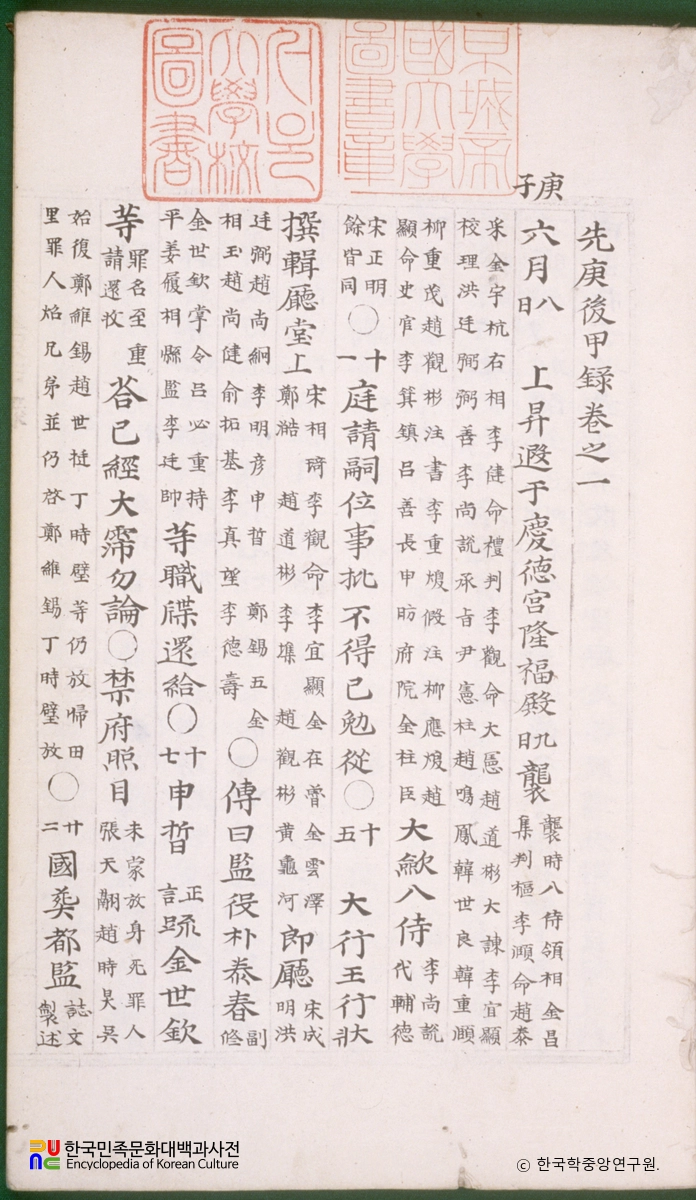 京城帝
國大學
圖書章
서울
大學校
圖書
先庚後甲録卷之一
庚子
六月八日 上昇遐于慶德宮隆福殿九日襲 襲時入侍領相金昌集判樞李頤命趙泰
采金宇杭右相李健命禮判李觀命大憲趙道彬大諫李宜顯
校理洪廷弼弼善李尚說承旨尹憲柱趙鳴鳳韓世良韓重
柳重茂趙觀彬注書李重煥假注柳應煥趙
顯命史官李箕鎮呂善長申昉府院金柱臣
大歛入侍 李尚說代輔德
宋正明餘皆同○十一庭請嗣位事批不得已勉從○十五 大行王行狀
撰輯廳堂上 宋相琦李觀命李宜顯金在魯金雲澤
鄭澔趙道彬李㙫趙觀彬黃龜河
郎廳 宋成明洪
廷弼趙尚絅李明彦申晳鄭錫五金
相玉趙尚健俞拓基李真望李德壽
○傳曰監役朴泰春 副修
金世欽掌令呂必重持
平姜履相縣監李廷帥
等職牒還給○十七申晳 正言 疏金世欽
等 罪名至重請還收 答已經大霈勿論○禁府照目 未蒙放身死罪人張天翮趙時昊吳
始復鄭維錫趙世丁時璧等仍放歸田
里罪人焰兄弟並仍啓鄭維錫丁時璧放
○廿二國葬都監 誌文製述
한국민족문화대백과사전
Encyclopedia of Korean Culture
ⓒ 한국학중앙연구원.